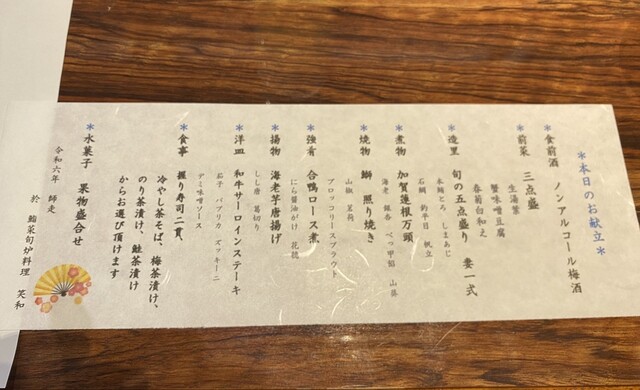 ＊本日のお献立＊
＊食前酒 ノンアルコール梅酒
＊前菜 三点盛
生湯葉
蟹味噌豆腐
春菊白和え
＊造里 旬の五点盛り 妻一式
本鮪とろ しまあじ
石鯛 釣平目 帆立
＊煮物 加賀蓮根万頭
海老 銀杏 べっ甲餡 山葵
＊焼物 鰤 照り焼き
山椒 茗荷
ブロッコリースプラウト
＊強肴 合鴨ロース煮
にら醤油がけ 花穂
＊揚物 海老芋唐揚げ
しし唐 葛切り
＊洋皿 和牛サーロインステーキ
茄子 パプリカ ズッキーニ
デミ味噌ソース
＊食事 握り寿司二貫、
冷やし茶そば、梅茶漬け、
のり茶漬け、鮭茶漬け
からお選び頂けます
＊水菓子 果物盛合せ
令和六年 師走
於 鮨菜旬炉料理 笑和